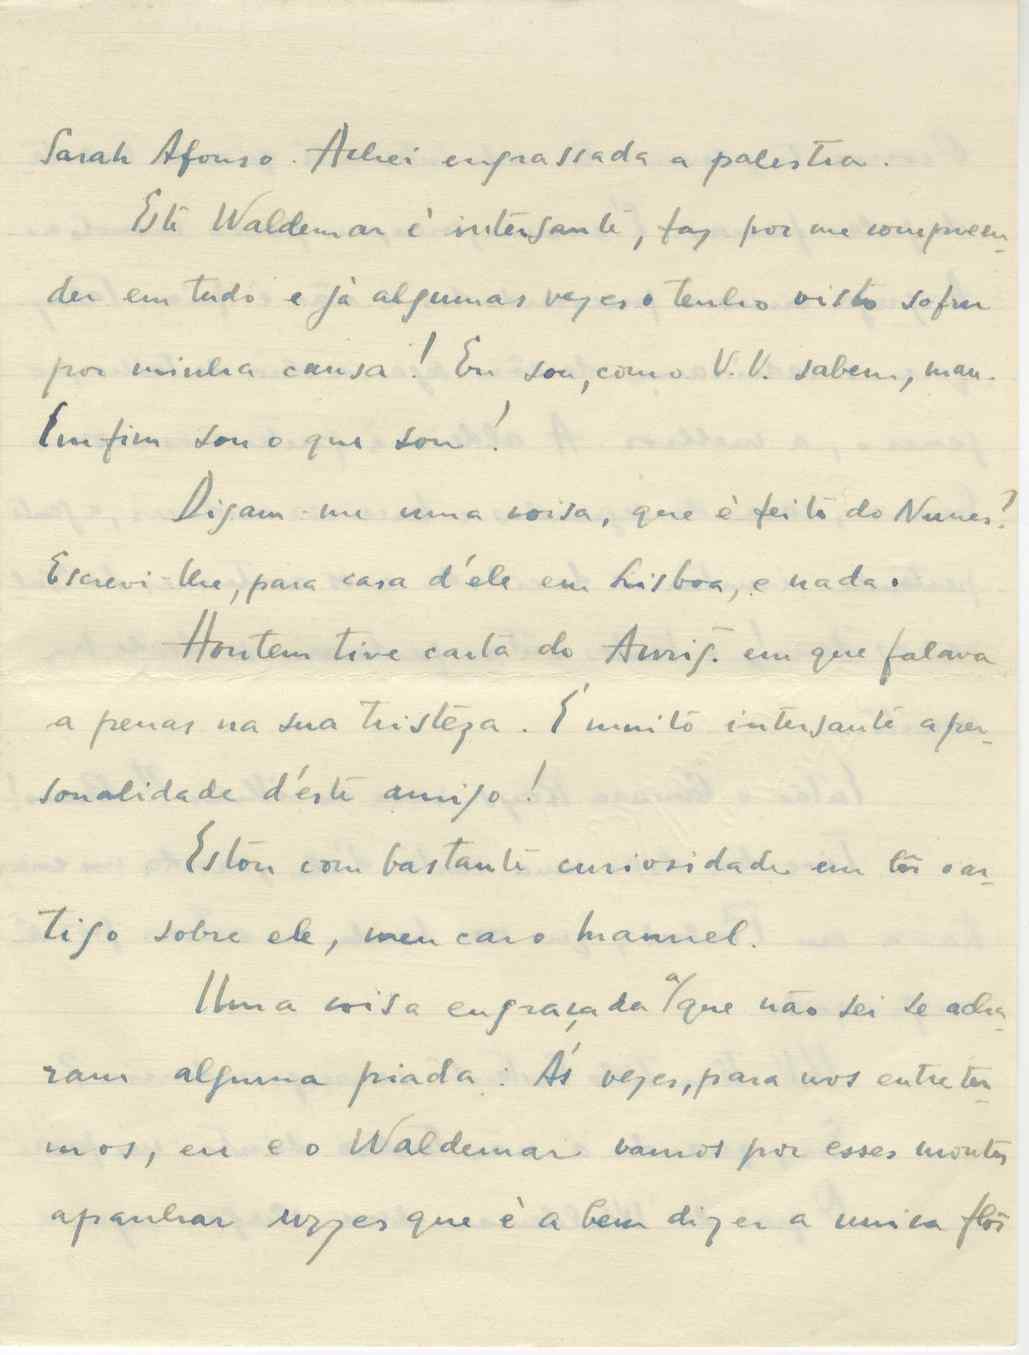 Sarah Afonso. Achei engrassada a palestra.
Este Waldemar è intersante, faz por me compreen-
der em tudo e jà algumas vezes o tenho visto sofrer
por minha causa! Eu sou, como V.V. sabem, mau.
Emfim sou o que sou!
Digam-me uma coisa, que è feito do Nunes?
Escrevi-lhe, para casa d'éle em Lisboa, e nada.
Hontem tive carta do em que falava
a penas na sua tristeza. É muito intersante a per-
sonalidade d'éste amigo!
Estou com bastante curiosidade em lêr o ar-
tigo sobre ele, meu caro Manuel.
Uma coisa engraçada a/que não sei se acha-
ram alguma piada: Ás vezes, para nos entreter-
mos, eu e o Waldemar vamos por esses montes
apanhar que è a bem dizer a unica flôr